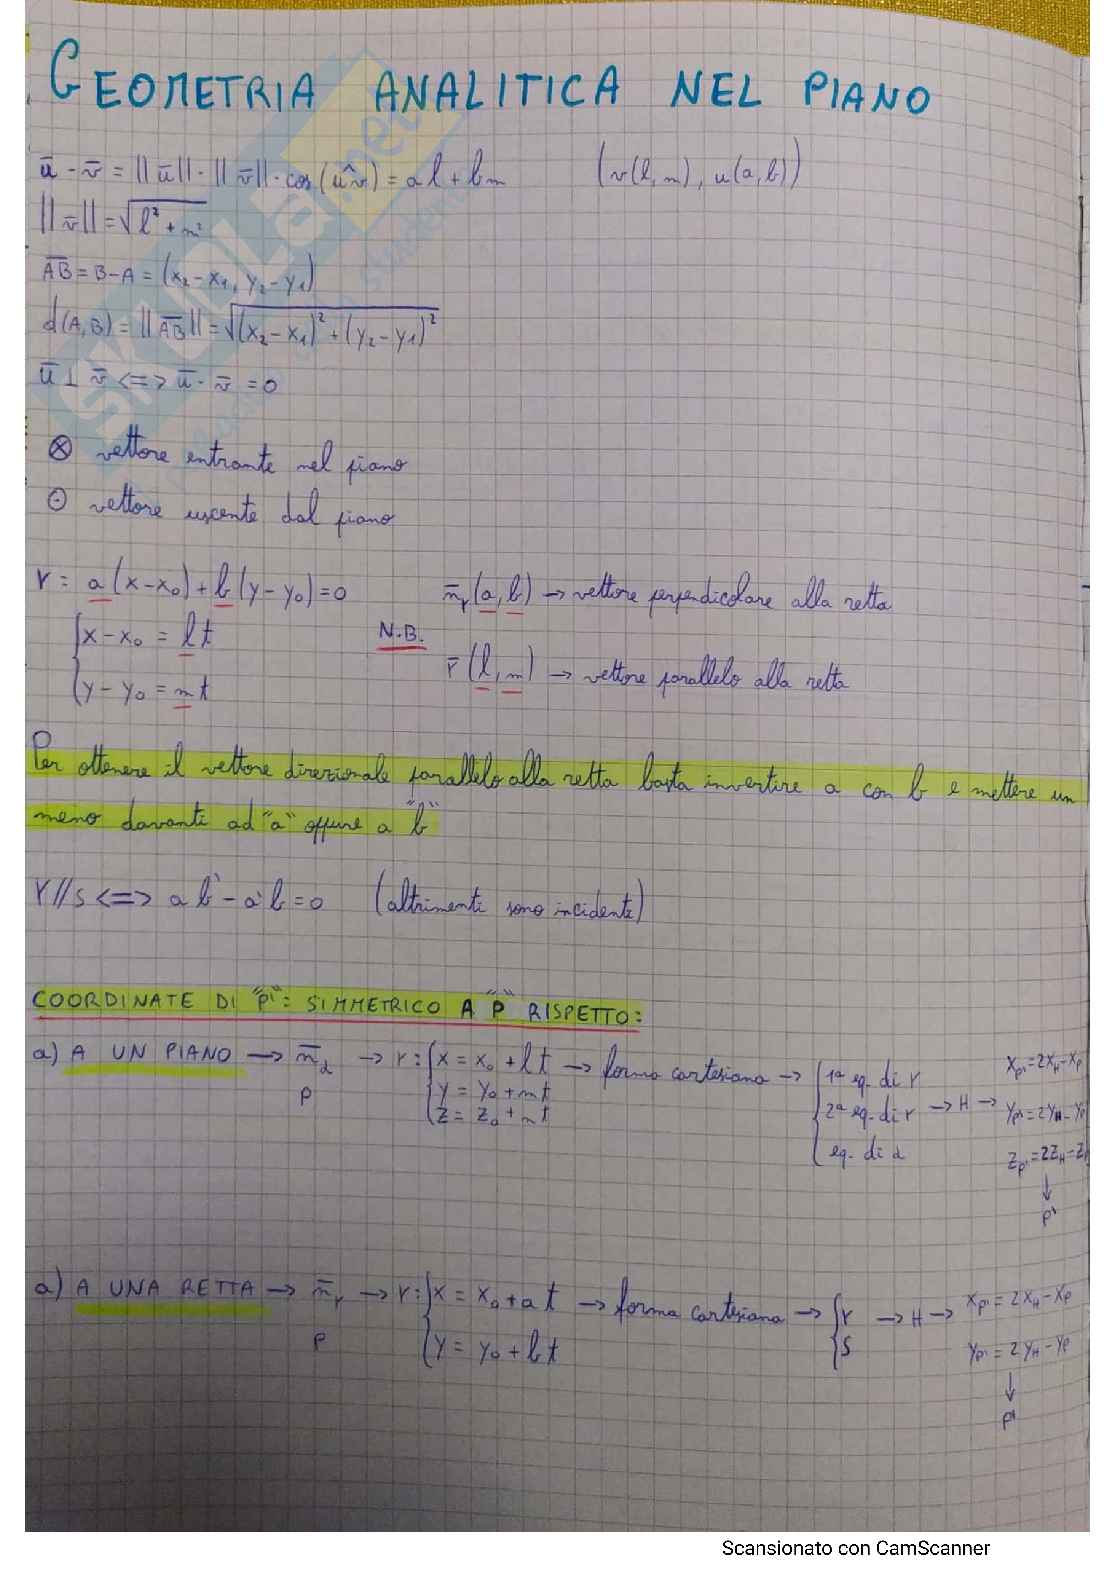 GEOMETRIA ANALITICA NEL PIANO
ū · v̄ = ||ū|| · ||v̄|| · cos(ûv) = al + bm (v(l, m), u(a, b))
||v̄|| = √(l² + m²)
A̅B̅ = B - A = (x₂ - x₁, y₂ - y₁)
d(A, B) = ||A̅B̅|| = √((x₂ - x₁)² + (y₂ - y₁)²)
ū ⊥ v̄ <=> ū · v̄ = 0
⊗ vettore entrante nel piano
⊙ vettore uscente dal piano
r: a(x - x₀) + b(y - y₀) = 0 n̄ᵣ(a, b) → vettore perpendicolare alla retta
{x - x₀ = lt N.B.
r̄(l, m) → vettore parallelo alla retta
{y - y₀ = mt
Per ottenere il vettore direzionale parallelo alla retta basta invertire a con b e mettere un
meno davanti ad "a" oppure a "b"
r // s <=> ab' - a'b = 0 (altrimenti sono incidenti)
COORDINATE DI "P'": SIMMETRICO A "P" RISPETTO:
a) A UN PIANO → n̄α → r: {x = x₀ + lt → forma cartesiana → {1ª eq. di r
P {y = y₀ + mt {2ª eq. di r → H →
{z = z₀ + nt {eq. di α
xP' = 2xH - xP
yP' = 2yH - yP
zP' = 2zH - z
↓
P'
a) A UNA RETTA → n̄ᵣ → r: {x = x₀ + at → forma cartesiana → {r → H → xP' = 2xH - xP
P {y = y₀ + bt {s yP' = 2yH - yP
↓
P'
SKUOLA.net
Scansionato con CamScanner